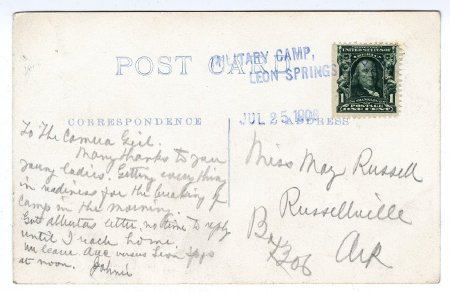 POST CARD
MILITARY CAMP,
LEON SPRINGS
UNITED STATES OF
POSTAGE
ONE CENT
1 1
JUL 25 1908
CORRESPONDENCE
ADDRESS
To The Camera Girl.
Many thanks to you
young ladies. Getting everything
in readiness for the breaking of
camp in the morning.
Got Albertas letter, no time to reply
until I reach home.
We leave Leon Spgs
at noon. Johnie
Miss May Russell
Russellville
Box 306 Ark